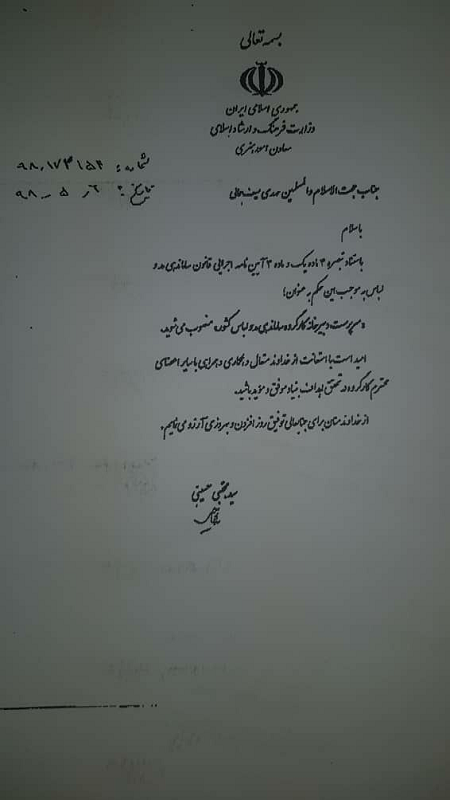 بسمه تعالی
جمهوری اسلامی ایران
وزارت فرهنگ و ارشاد اسلامی
معاون امور هنری
شماره: ۹۸,۱۷۳۱۵۴
تاریخ: ۲ر ۵ ـ ۹۸
جناب حجت الاسلام والمسلمین مهدی سیف جمالی
با سلام
باستناد تبصره ۴ ماده یک و ماده ۳ آیین نامه اجرایی قانون ساماندهی مد و
لباس به موجب این حکم به عنوان؛
«سرپرست دبیرخانه کارگروه ساماندهی مد و لباس کشور» منصوب می‌شوید.
امید است با استعانت از خداوند متعال و همکاری و همراهی با سایر اعضای
محترم کارگروه در تحقق اهداف بنیاد موفق و موید باشید.
از خداوند منان برای جنابعالی توفیق روز افزون و بهروزی آرزو می نمایم.
سید مجتبی حسینی